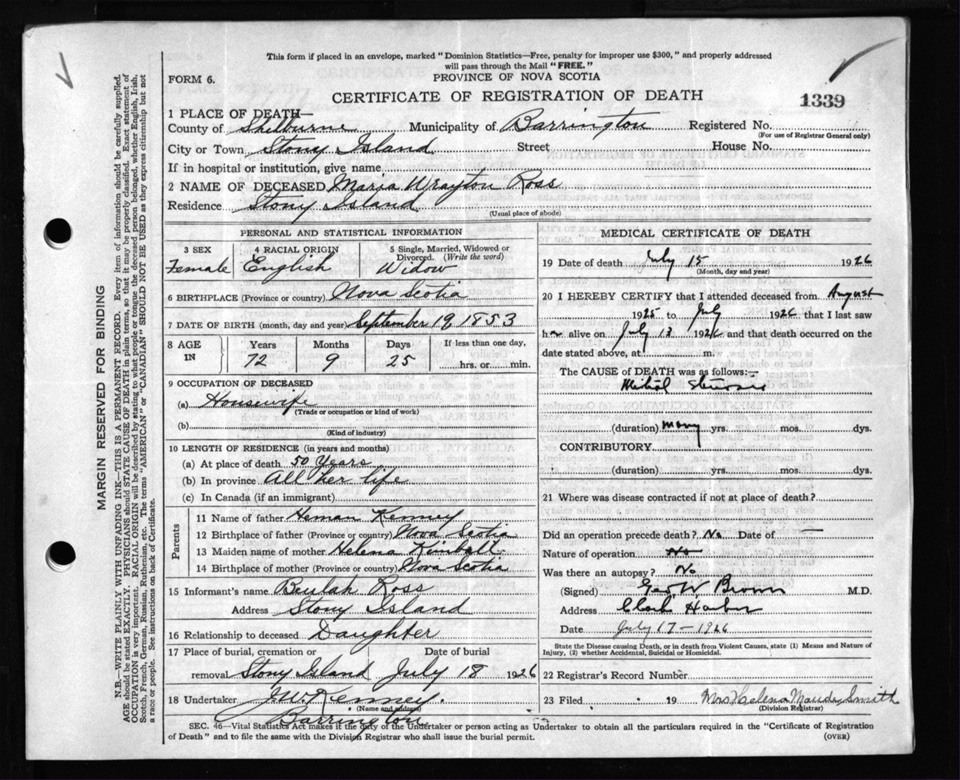 This form if placed in an envelope, marked "Dominion Statistics—Free, penalty for improper use $300," and properly addressed
will pass through the Mail "FREE."
FORM 6.
PROVINCE OF NOVA SCOTIA
CERTIFICATE OF REGISTRATION OF DEATH
1339
1 PLACE OF DEATH—
County of Shelburne Municipality of Barrington Registered No.
(For use of Registrar General only)
City or Town Stony Island Street House No.
If in hospital or institution, give name
2 NAME OF DECEASED Maria Wrayton Ross
Residence Stony Island
(Usual place of abode)
PERSONAL AND STATISTICAL INFORMATION
3 SEX 4 RACIAL ORIGIN 5 Single, Married, Widowed or
Divorced. (Write the word)
Female English Widow
6 BIRTHPLACE (Province or country) Nova Scotia
7 DATE OF BIRTH (month, day and year) September 19 1853
8 AGE IN Years Months Days If less than one day,
72 9 25 hrs. or min.
9 OCCUPATION OF DECEASED
(a) Housewife
(Trade or occupation or kind of work)
(b)
(Kind of industry)
10 LENGTH OF RESIDENCE (in years and months)
(a) At place of death 50 years
(b) In province All her life
(c) In Canada (if an immigrant)
Parents
11 Name of father Heman Kenney
12 Birthplace of father (Province or country) Nova Scotia
13 Maiden name of mother Helena Kimball
14 Birthplace of mother (Province or country) Nova Scotia
15 Informant's name Beulah Ross
Address Stony Island
16 Relationship to deceased Daughter
17 Place of burial, cremation or Date of burial
removal Stony Island July 18 1926
18 Undertaker J.W. Kenney.
(Name and address)
Barrington
MEDICAL CERTIFICATE OF DEATH
19 Date of death July 15 1926
(Month, day and year)
20 I HEREBY CERTIFY that I attended deceased from August
1925 to July 1926 that I last saw
her alive on July 13 1926 and that death occurred on the
date stated above, at m.
The CAUSE OF DEATH was as follows:—
Mitral Stenosis
(duration) many yrs. mos. dys.
CONTRIBUTORY
(duration) yrs. mos. dys.
21 Where was disease contracted if not at place of death?
Did an operation precede death? No Date of —
Nature of operation No
Was there an autopsy? No
(Signed) Geo W Brown M.D.
Address Clark Harbor
Date July 17—1926
State the Disease causing Death, or in death from Violent Causes, state (1) Means and Nature of
Injury, (2) whether Accidental, Suicidal or Homicidal.
22 Registrar's Record Number
23 Filed 19 Mrs Haelena Maude Smith
(Division Registrar)
SEC. 46—Vital Statistics Act makes it the duty of the Undertaker or person acting as Undertaker to obtain all the particulars required in the "Certificate of Registration
of Death" and to file the same with the Division Registrar who shall issue the burial permit. (OVER)
MARGIN RESERVED FOR BINDING
N.B.—WRITE PLAINLY WITH UNFADING INK—THIS IS A PERMANENT RECORD. Every item of information should be carefully supplied.
AGE should be stated EXACTLY. PHYSICIANS should STATE CAUSE OF DEATH in plain terms, so that it may be properly classified. Exact statement of
OCCUPATION is very important. RACIAL ORIGIN will be described by stating to what people or tongue the deceased person belonged, whether English, Irish,
Scotch, French, German, Russian, Ruthenian, etc. The terms "AMERICAN" or "CANADIAN" SHOULD NOT BE USED as they express citizenship but not
a race or people. See instructions on back of Certificate.